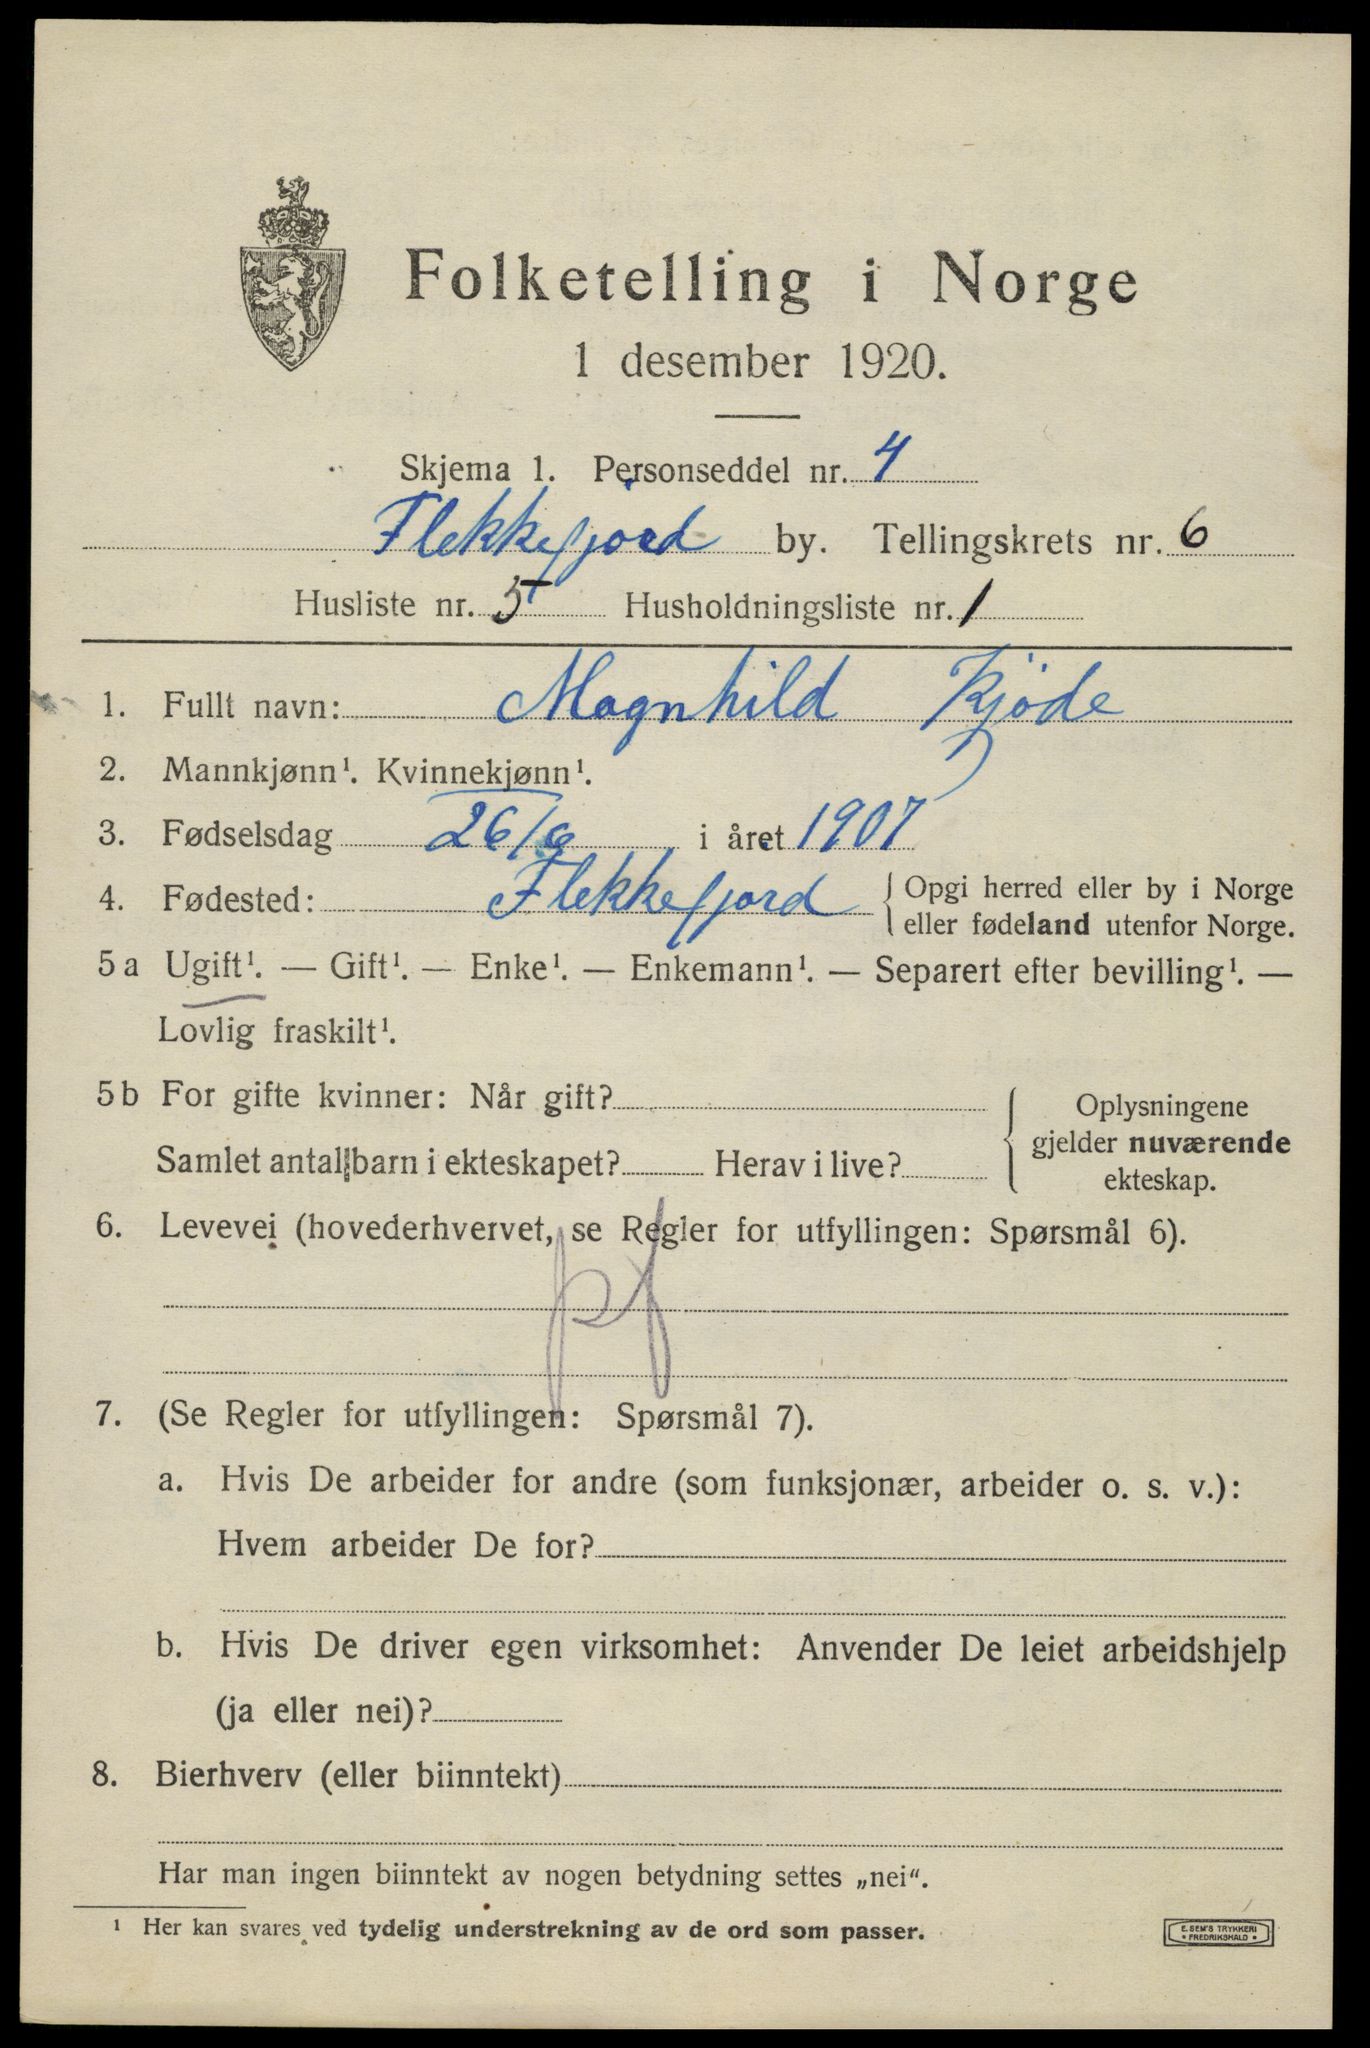 Folketelling i Norge
1 desember 1920.
Skjema 1. Personseddel nr. 4
Flekkefjord by. Tellingskrets nr. 6
Husliste nr. 5 Husholdningsliste nr. 1
1. Fullt navn: Magnhild Kjöde
2. Mannkjønn¹. Kvinnekjønn¹.
3. Fødselsdag 26/6 i året 1907
4. Fødested: Flekkefjord { Opgi herred eller by i Norge
eller fødeland utenfor Norge.
5a Ugift¹. — Gift¹. — Enke¹. — Enkemann¹. — Separert efter bevilling¹. —
Lovlig fraskilt¹.
5b For gifte kvinner: Når gift?
Samlet antal barn i ekteskapet? Herav i live?
{ Oplysningene
gjelder nuværende
ekteskap.
6. Levevei (hovederhvervet, se Regler for utfyllingen: Spørsmål 6).
pf
7. (Se Regler for utfyllingen: Spørsmål 7).
a. Hvis De arbeider for andre (som funksjonær, arbeider o. s. v.):
Hvem arbeider De for?
b. Hvis De driver egen virksomhet: Anvender De leiet arbeidshjelp
(ja eller nei)?
8. Bierhverv (eller biinntekt)
Har man ingen biinntekt av nogen betydning settes „nei“.
¹ Her kan svares ved tydelig understrekning av de ord som passer.
E. SEM'S TRYKKERI
• FREDRIKSHALD •